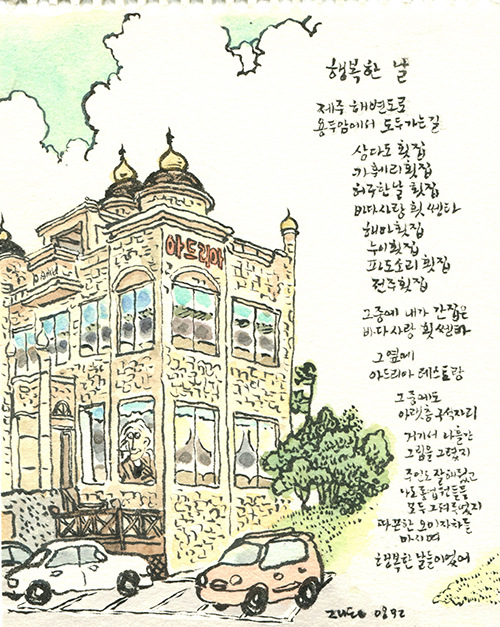 행복한 날
제주 해변도로
용두암에서 도두가는길
삼다도 횟집
횟집
횟집
바다사랑 횟쎈타
해마횟집
누이횟집
파도소리 횟집
전주횟집
그중에 내가 간집은
바다사랑 횟쎈타
그 옆에
아드리아 레스토랑
그중에도
아랫층 구석자리
거기서 나흘간
그림을 그렸지
주인도 잘해줬고
나도 종업원들을
모두 그려주었지
따끈한 오미자차를
마시며
행복한 날들이었어
아드리아